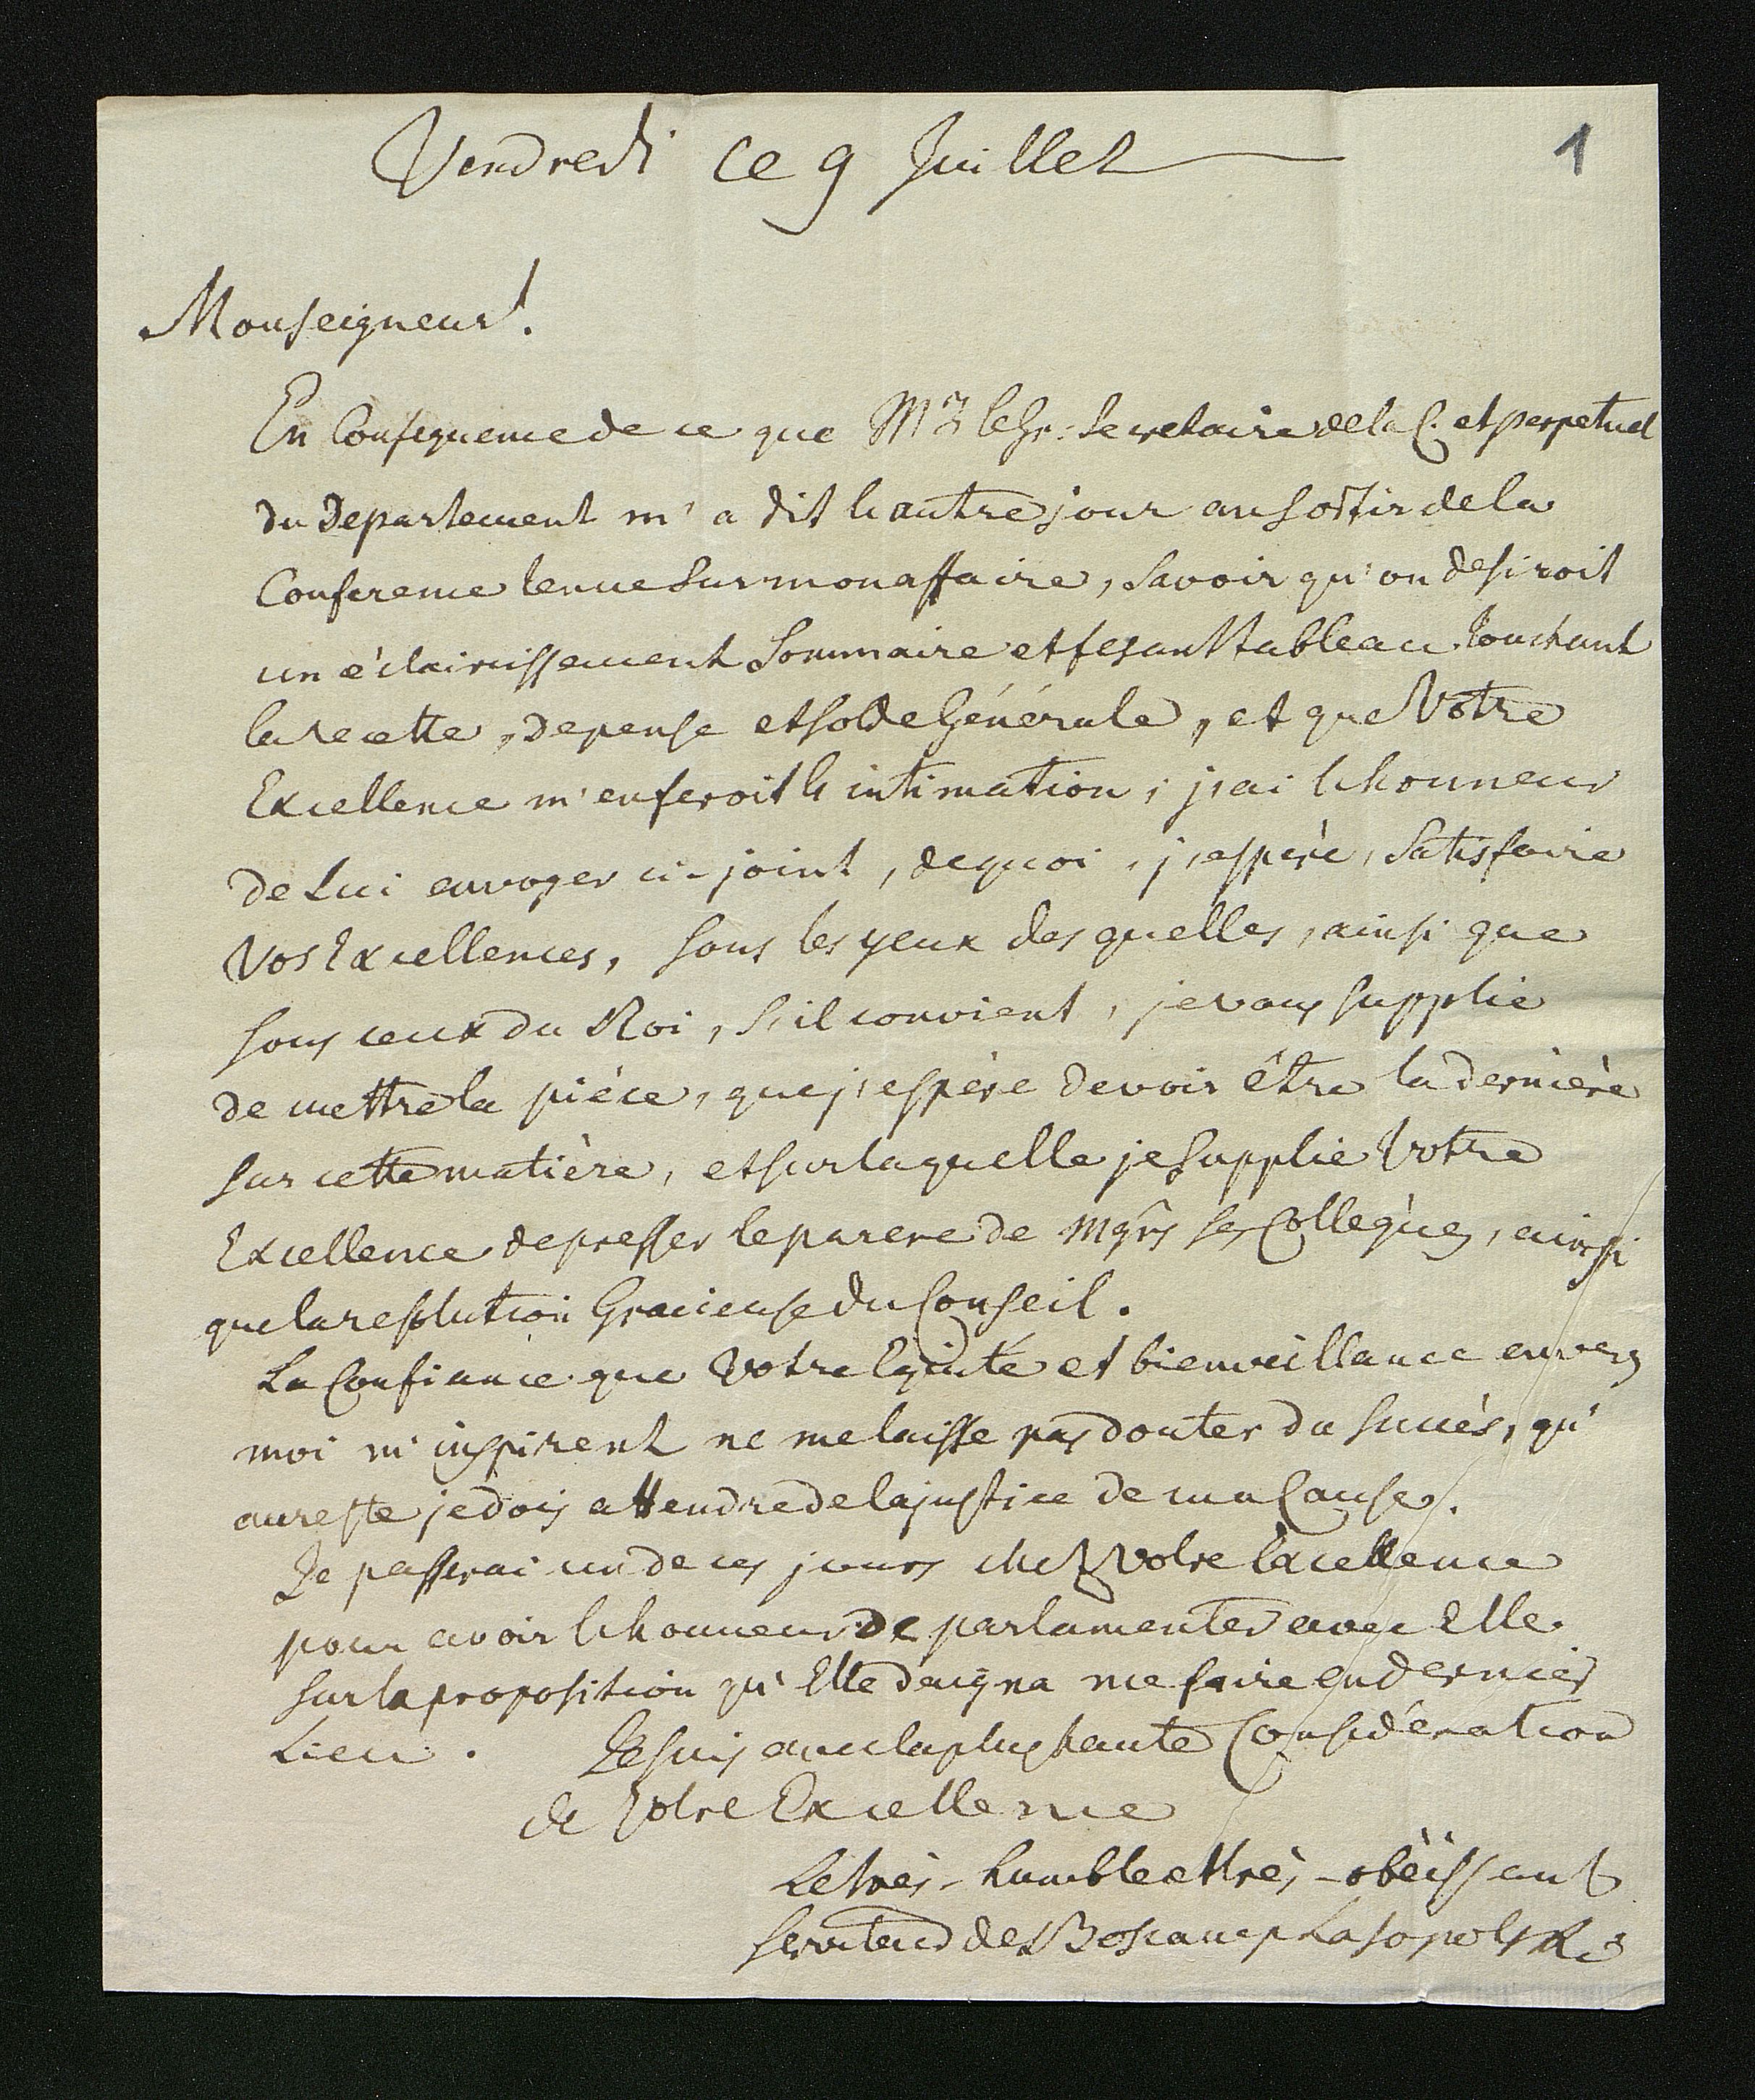 Vendredi ce 9 Juillet
1
Monseigneur!
En Consequence de ce que Mr le Gr: Secretaire de la C. et perpetuel
du Departement m'a dit l'autre jour au sortir de la
Conference tenue sur mon affaire, Savoir qu'on desiroit
un éclaircissement Sommaire et fesant tableau touchant
la recette, depense et solde Générale, et que Votre
Excellence m'en feroit l'intimation; j'ai l'honneur
de Lui envoyer ci-joint, dequoi, j'espère, Satisfaire
Vos Excellences, sous les yeux des quelles, ainsi que
sous ceux du Roi, s'il convient, je vous supplie
de mettre la pièce, que j'espère devoir être la dernière
sur cette matière, et sur laquelle je Supplie Votre
Excellence de presser le parere de Mgrs ses Collegues, ainsi
que la resolution Gracieuse du Conseil.
La Confiance que Votre équité et bienveillance envers
moi m'inspirent ne me laisse pas douter du succès, qu'
au reste je dois attendre de la justice de ma Cause.
Je passerai un de ces jours chez Votre Excellence
pour avoir l'honneur de parlamenter avec Elle
sur la proposition qu'Elle daigna me faire en dernier
Lieu. Je suis avec la plus haute Considération
de Votre Excellence
Le très-humble et très-obéissant
serviteur de Boscamp Lasopolski